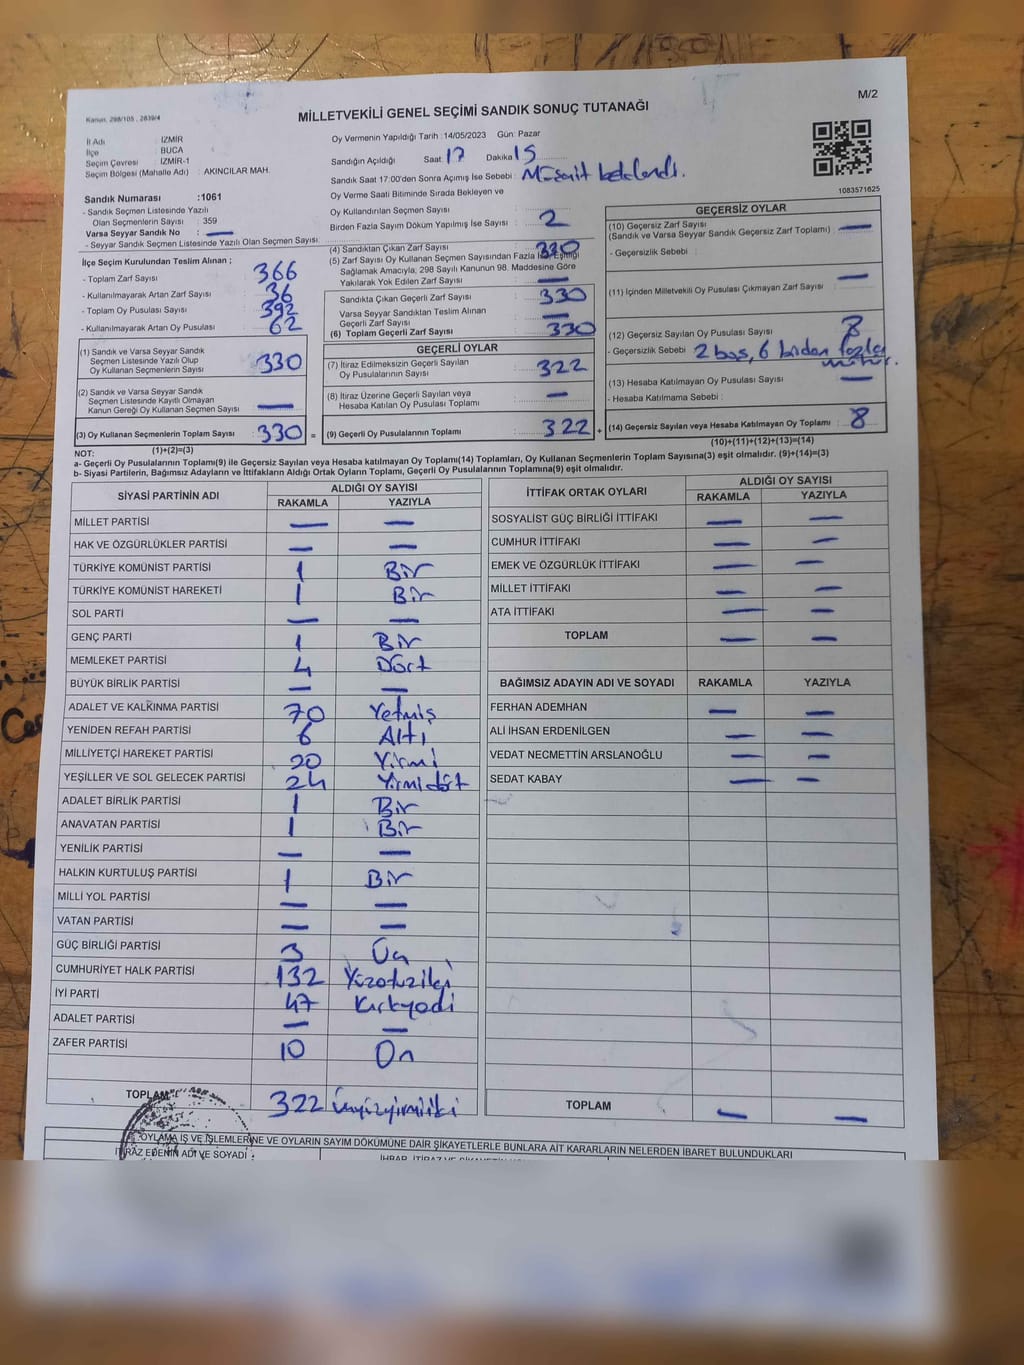 M/2
Kanun, 298/105 , 2839/4
MİLLETVEKİLİ GENEL SEÇİMİ SANDIK SONUÇ TUTANAĞI
İl Adı : İZMİR
İlçe : BUCA
Seçim Çevresi : İZMİR-1
Seçim Bölgesi (Mahalle Adı) : AKINCILAR MAH.
Oy Vermenin Yapıldığı Tarih : 14/05/2023 Gün: Pazar
Sandığın Açıldığı Saat: 17 Dakika 15
Sandık Saat 17:00'den Sonra Açımış İse Sebebi : Müsait beklendi.
1083571625
Sandık Numarası :1061
- Sandık Seçmen Listesinde Yazılı
Olan Seçmenlerin Sayısı : 359
Varsa Seyyar Sandık No : —
- Seyyar Sandık Seçmen Listesinde Yazılı Olan Seçmen Sayısı
Oy Verme Saati Bitiminde Sırada Bekleyen ve
Oy Kullandırılan Seçmen Sayısı : 2
Birden Fazla Sayım Döküm Yapılmış İse Sayısı :
İlçe Seçim Kurulundan Teslim Alınan ;
- Toplam Zarf Sayısı : 366
- Kullanılmayarak Artan Zarf Sayısı : 36
- Toplam Oy Pusulası Sayısı : 392
- Kullanılmayarak Artan Oy Pusulası : 62
(1) Sandık ve Varsa Seyyar Sandık
Seçmen Listesinde Yazılı Olup
Oy Kullanan Seçmenlerin Sayısı : 330
(2) Sandık ve Varsa Seyyar Sandık
Seçmen Listesinde Kayıtlı Olmayan
Kanun Gereği Oy Kullanan Seçmen Sayısı : —
(3) Oy Kullanan Seçmenlerin Toplam Sayısı : 330 =
(1)+(2)=(3)
(4) Sandıktan Çıkan Zarf Sayısı : 330
(5) Zarf Sayısı Oy Kullanan Seçmen Sayısından Fazla İse, Eşitliği
Sağlamak Amacıyla; 298 Sayılı Kanunun 98. Maddesine Göre
Yakılarak Yok Edilen Zarf Sayısı : —
Sandıkta Çıkan Geçerli Zarf Sayısı : 330
Varsa Seyyar Sandıktan Teslim Alınan
Geçerli Zarf Sayısı : —
(6) Toplam Geçerli Zarf Sayısı : 330
GEÇERLİ OYLAR
(7) İtiraz Edilmeksizin Geçerli Sayılan
Oy Pusulalarının Sayısı : 322
(8) İtiraz Üzerine Geçerli Sayılan veya
Hesaba Katılan Oy Pusulası Toplamı : —
(9) Geçerli Oy Pusulalarının Toplamı : 322 +
GEÇERSİZ OYLAR
(10) Geçersiz Zarf Sayısı : —
(Sandık ve Varsa Seyyar Sandık Geçersiz Zarf Toplamı)
- Geçersizlik Sebebi :
(11) İçinden Milletvekili Oy Pusulası Çıkmayan Zarf Sayısı : —
(12) Geçersiz Sayılan Oy Pusulası Sayısı : 8
- Geçersizlik Sebebi : 2 boş, 6 birden fazla
mühür.
(13) Hesaba Katılmayan Oy Pusulası Sayısı : —
- Hesaba Katılmama Sebebi :
(14) Geçersiz Sayılan veya Hesaba Katılmayan Oy Toplamı : 8
(10)+(11)+(12)+(13)=(14)
NOT:
a- Geçerli Oy Pusulalarının Toplamı(9) ile Geçersiz Sayılan veya Hesaba katılmayan Oy Toplamı(14) Toplamları, Oy Kullanan Seçmenlerin Toplam Sayısına(3) eşit olmalıdır. (9)+(14)=(3)
b- Siyasi Partilerin, Bağımsız Adayların ve İttifakların Aldığı Ortak Oyların Toplamı, Geçerli Oy Pusulalarının Toplamına(9) eşit olmalıdır.
SİYASİ PARTİNİN ADI ALDIĞI OY SAYISI
RAKAMLA YAZIYLA
MİLLET PARTİSİ — —
HAK VE ÖZGÜRLÜKLER PARTİSİ — —
TÜRKİYE KOMÜNİST PARTİSİ 1 Bir
TÜRKİYE KOMÜNİST HAREKETİ 1 Bir
SOL PARTİ — —
GENÇ PARTİ 1 Bir
MEMLEKET PARTİSİ 4 Dört
BÜYÜK BİRLİK PARTİSİ — —
ADALET VE KALKINMA PARTİSİ 70 Yetmiş
YENİDEN REFAH PARTİSİ 6 Altı
MİLLİYETÇİ HAREKET PARTİSİ 20 Yirmi
YEŞİLLER VE SOL GELECEK PARTİSİ 24 Yirmidört
ADALET BİRLİK PARTİSİ 1 Bir
ANAVATAN PARTİSİ 1 Bir
YENİLİK PARTİSİ — —
HALKIN KURTULUŞ PARTİSİ 1 Bir
MİLLİ YOL PARTİSİ — —
VATAN PARTİSİ — —
GÜÇ BİRLİĞİ PARTİSİ 3 Üç
CUMHURİYET HALK PARTİSİ 132 Yüzotuziki
İYİ PARTİ 47 Kırkyedi
ADALET PARTİSİ — —
ZAFER PARTİSİ 10 On
TOPLAM 322 Üçyüzyirmiiki
İTTİFAK ORTAK OYLARI ALDIĞI OY SAYISI
RAKAMLA YAZIYLA
SOSYALİST GÜÇ BİRLİĞİ İTTİFAKI — —
CUMHUR İTTİFAKI — —
EMEK VE ÖZGÜRLÜK İTTİFAKI — —
MİLLET İTTİFAKI — —
ATA İTTİFAKI — —
TOPLAM — —
BAĞIMSIZ ADAYIN ADI VE SOYADI RAKAMLA YAZIYLA
FERHAN ADEMHAN — —
ALİ İHSAN ERDENİLGEN — —
VEDAT NECMETTİN ARSLANOĞLU — —
SEDAT KABAY — —
TOPLAM — —
OYLAMA İŞ VE İŞLEMLERİNE VE OYLARIN SAYIM DÖKÜMÜNE DAİR ŞİKAYETLERLE BUNLARA AİT KARARLARIN NELERDEN İBARET BULUNDUKLARI
İTİRAZ EDENİN ADI VE SOYADI